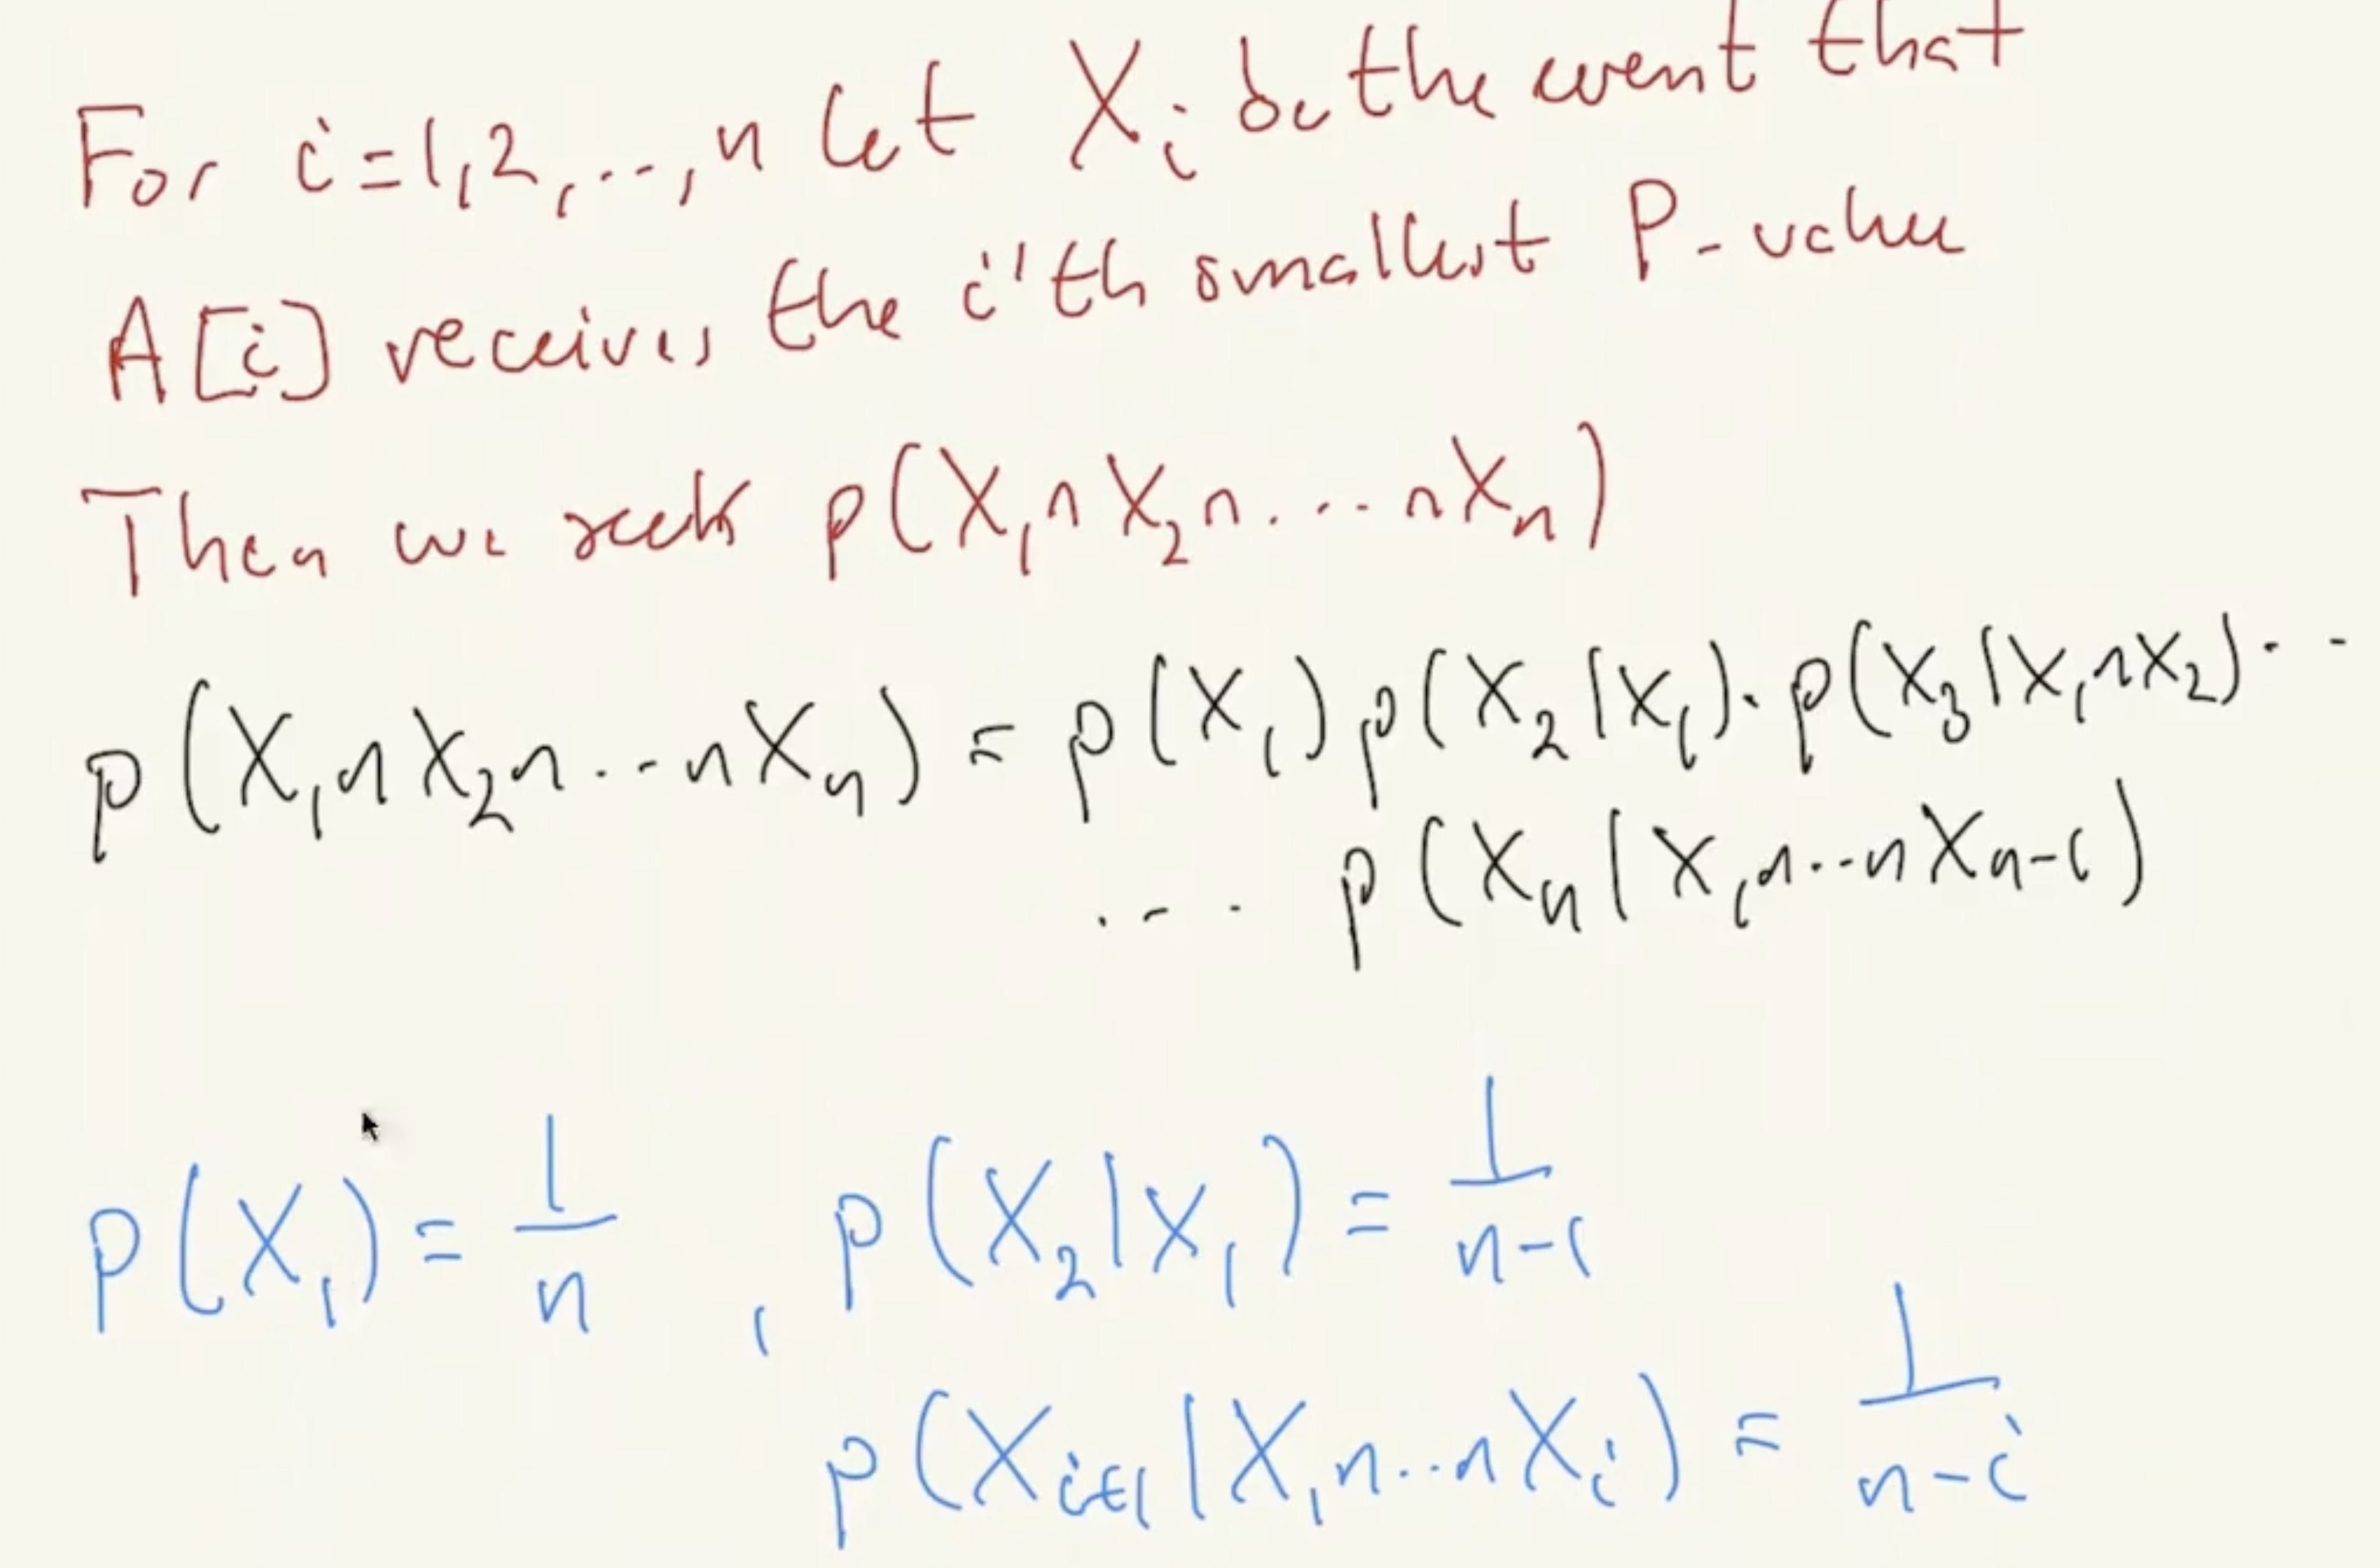 For i=1,2,...,n let Xᵢ be the event that
A[i] receives the i'th smallest P-value
Then we seek p(X₁∩X₂∩...∩Xₙ)
p(X₁∩X₂∩...∩Xₙ) = p(X₁)p(X₂|X₁)·p(X₃|X₁∩X₂)...
... p(Xₙ|X₁∩...∩Xₙ₋₁)
p(X₁) = 1/n , p(X₂|X₁) = 1/(n-1)
p(Xᵢ₊₁|X₁∩...∩Xᵢ) = 1/(n-i)